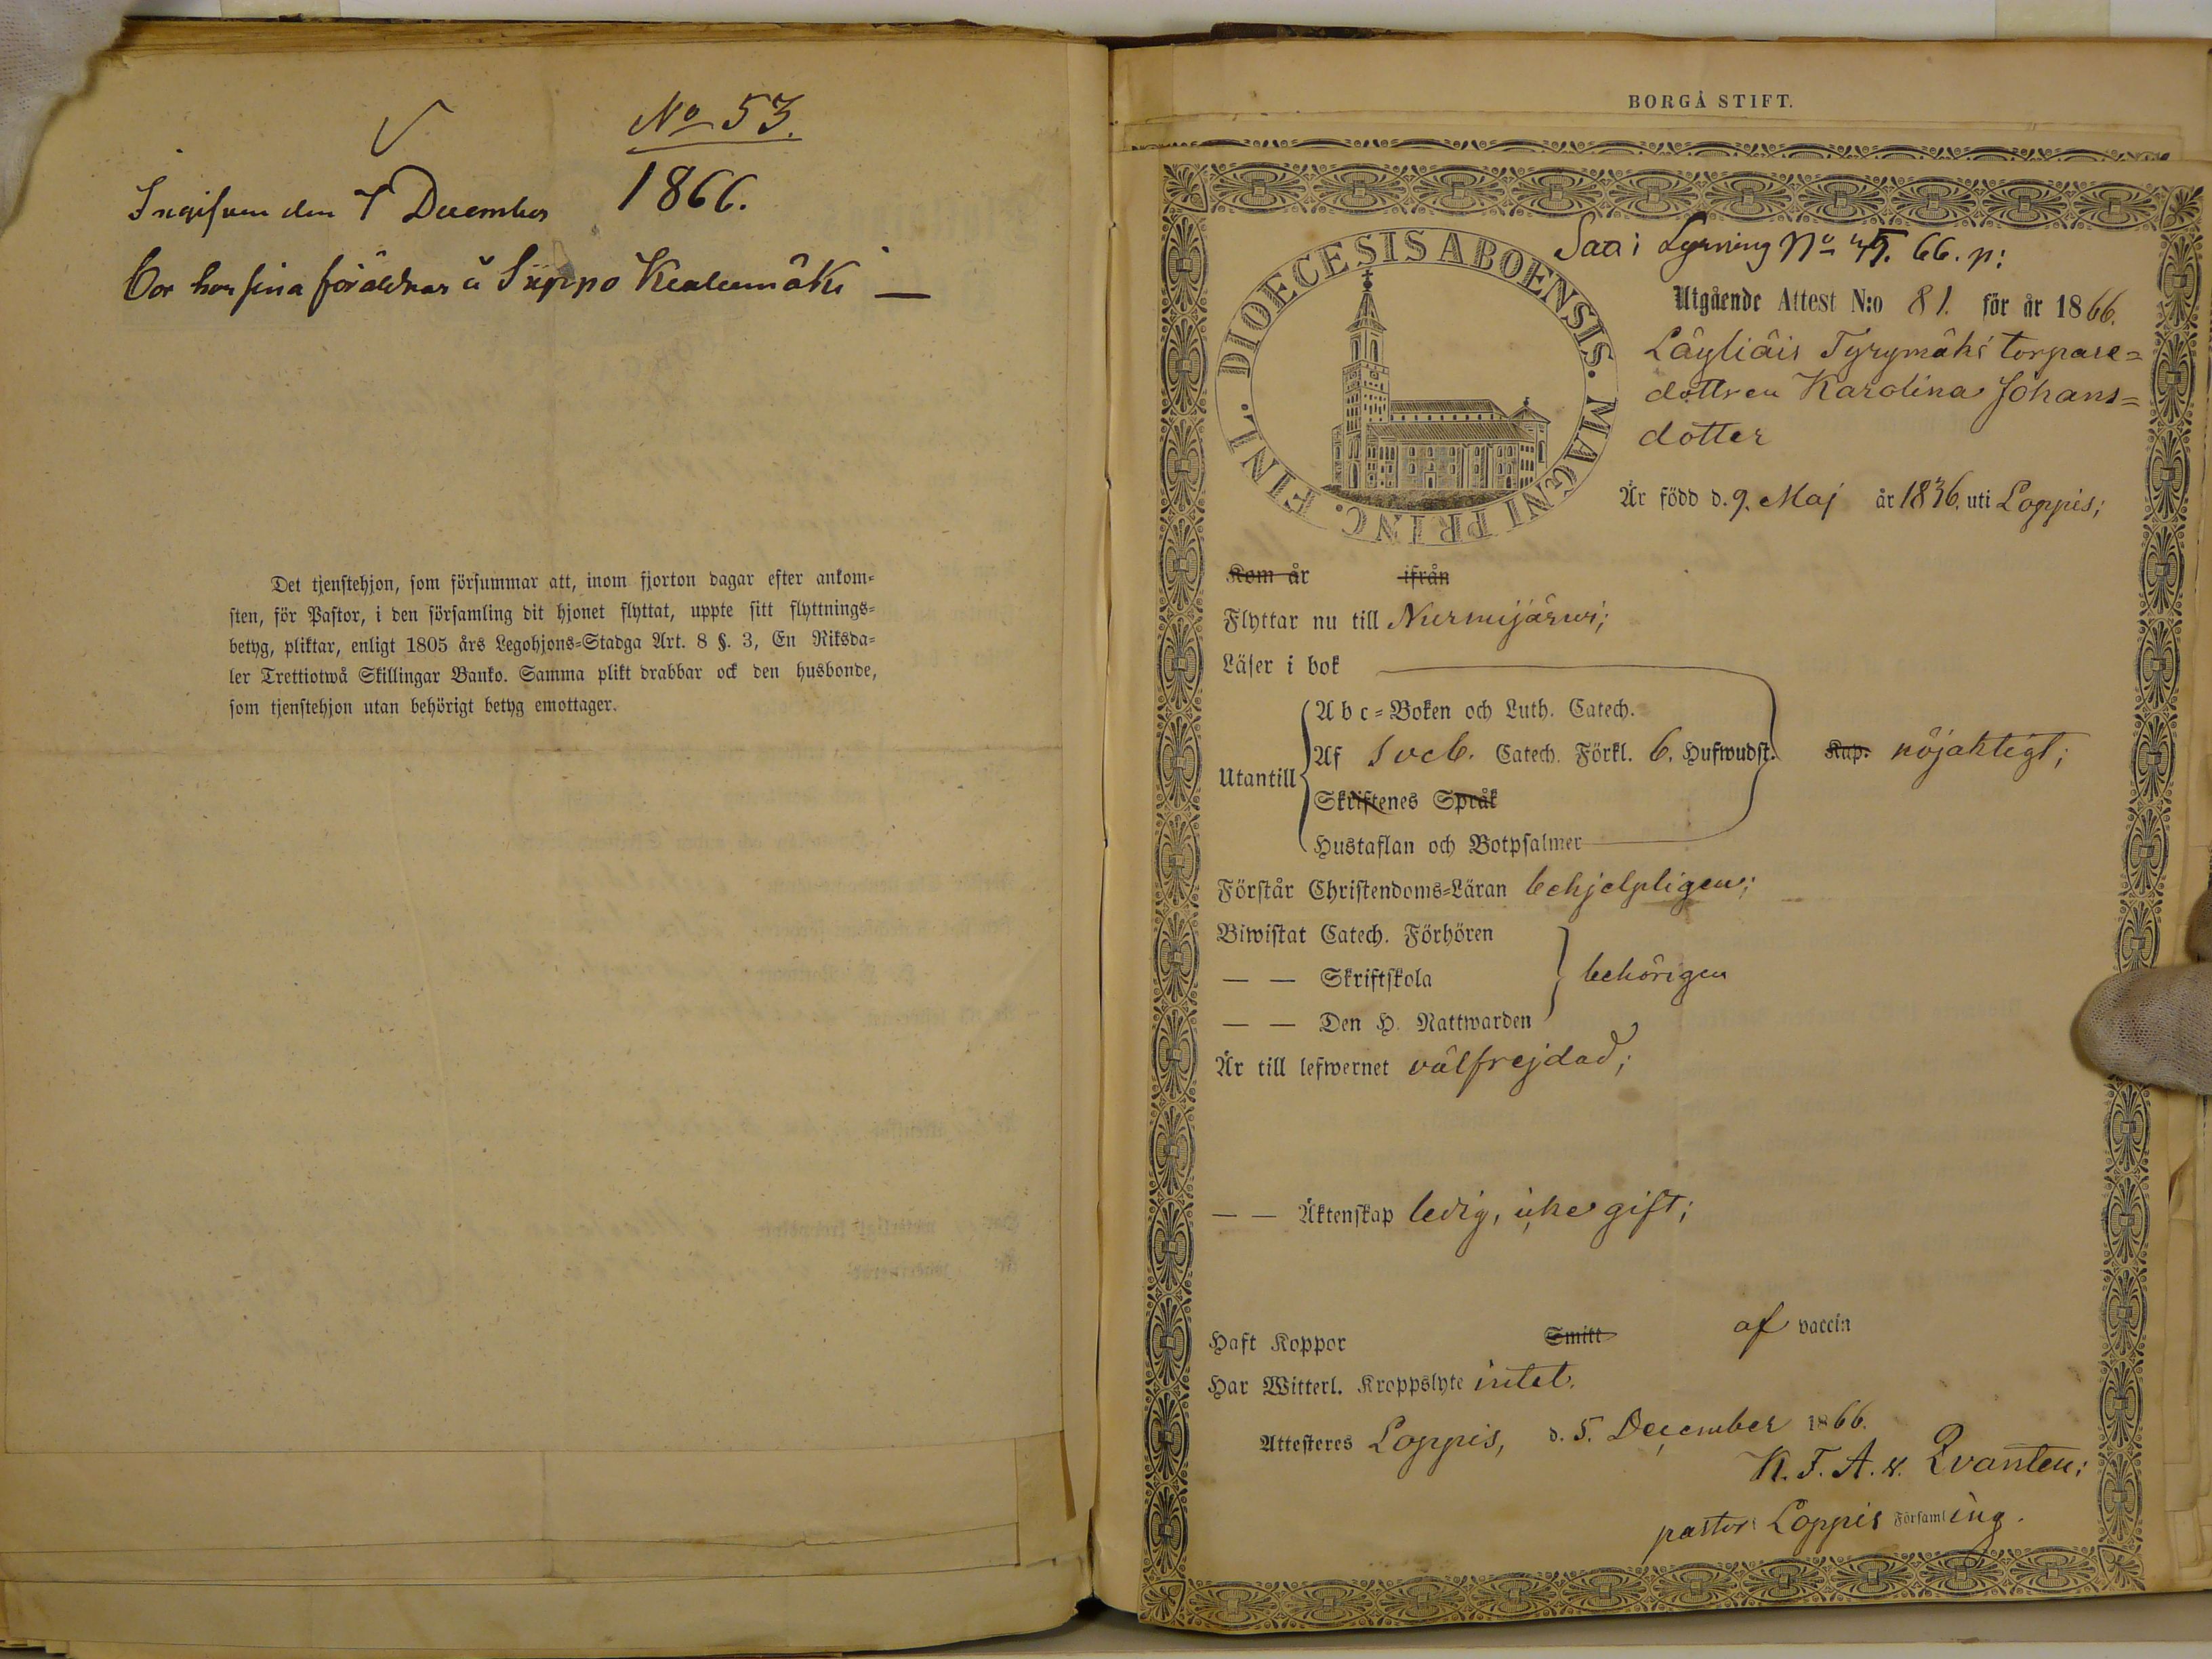 No 53.
Ingifven den 7 December 1866.
Bor hos sina föräldrar å Suppo
Det tjenstehjon, som försummar att, inom fjorton dagar efter ankom-
sten, för Pastor, i den församling dit hjonet flyttat, uppte sitt flyttnings-
betyg, pliktar, enligt 1805 års Legohjons-Stadga Art. 8 §. 3, En Riksda-
ler Trettiotwå Skillingar Banko. Samma plikt drabbar ock den husbonde,
som tjenstehjon utan behörigt betyg emottager.
BORGÅ STIFT.
DIOECESIS ABOENSIS. MAGNI PRINC. FINL.
No 66. p:
Utgående Attest N:o 81. för år 1866.
Läyliäis Tyrymäki torpare=
dottren Karolina Johans=
dotter
Är född d. 9. Maj år 1836. uti Loppis;
Kom år ifrån
Flyttar nu till Nurmijärwi;
Läser i bok
Utantill
Abc-Boken och Luth. Catech.
Af Sveb. Catech. Förkl. 6. Hufwudst. Kap. nöjaktigt;
Skriftenes Språk
Hustaflan och Botpsalmer
Förstår Christendoms-Läran behjelpligen;
Biwistat Catech. Förhören
— — Skriftskola behörigen
— — Den H. Nattwarden
Är till lefwernet välfrejdad;
— — Äktenskap ledig, icke gift;
Haft Koppor Smitt af vaccin
Har Witterl. Kroppslyte intet.
Attesteres Loppis, d. 5. December 1866.
K. F. A. v. Qvanten;
pastor i Loppis Församling.